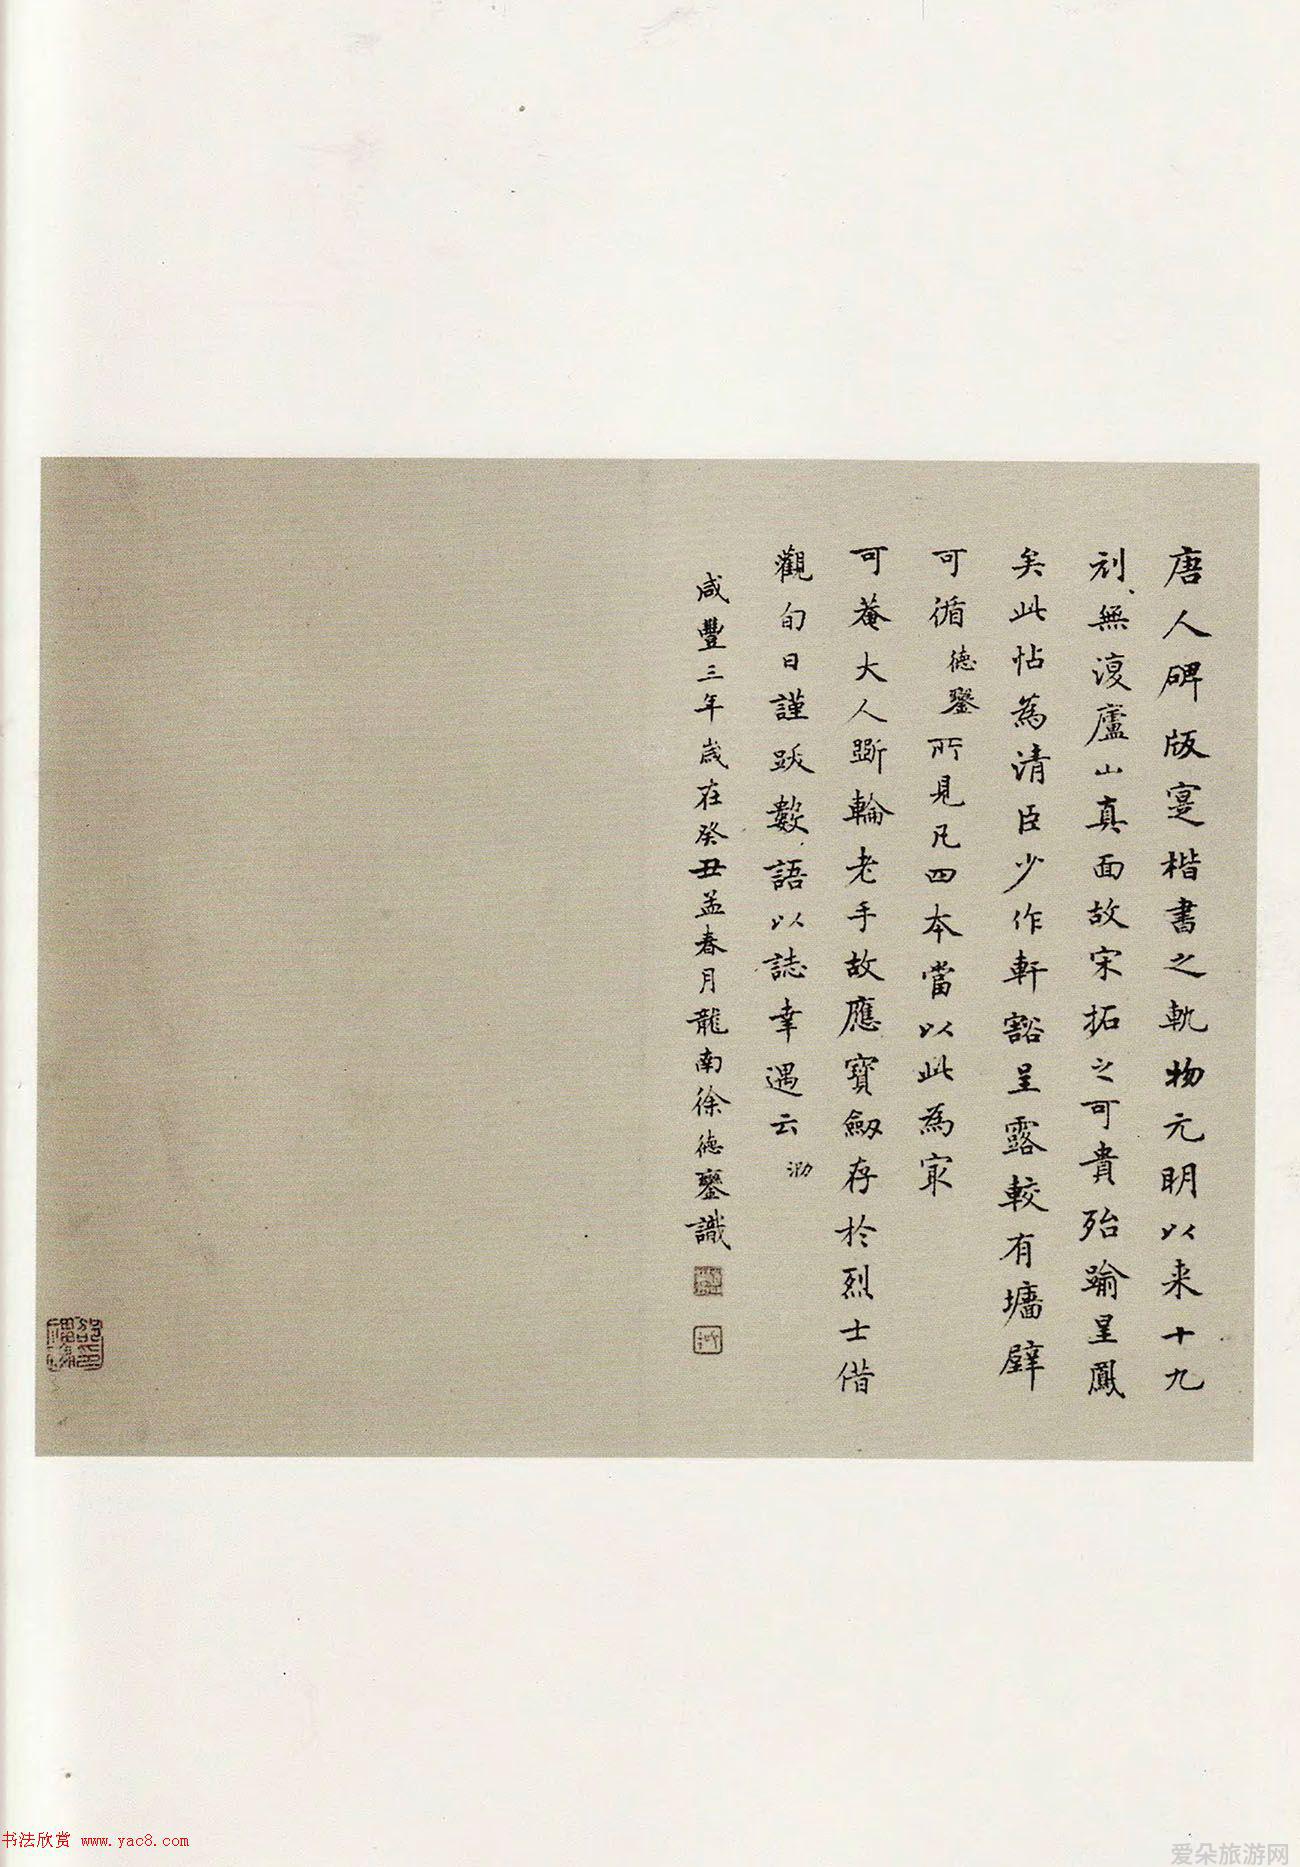 唐人碑版寔楷書之軌物元明以来十九
刓無復廬山真面故宋拓之可貴殆踰星鳳
矣此帖為清臣少作軒豁呈露較有墻壁
可循德鋆所見凡四本當以此為冣
可菴大人斲輪老手故應寶劔存於烈士借
觀旬日謹跋數語以誌幸遇云
咸豐三年歲在癸丑孟春月龍南徐德鋆識
书法欣赏 www.yac8.com
爱朵旅游网